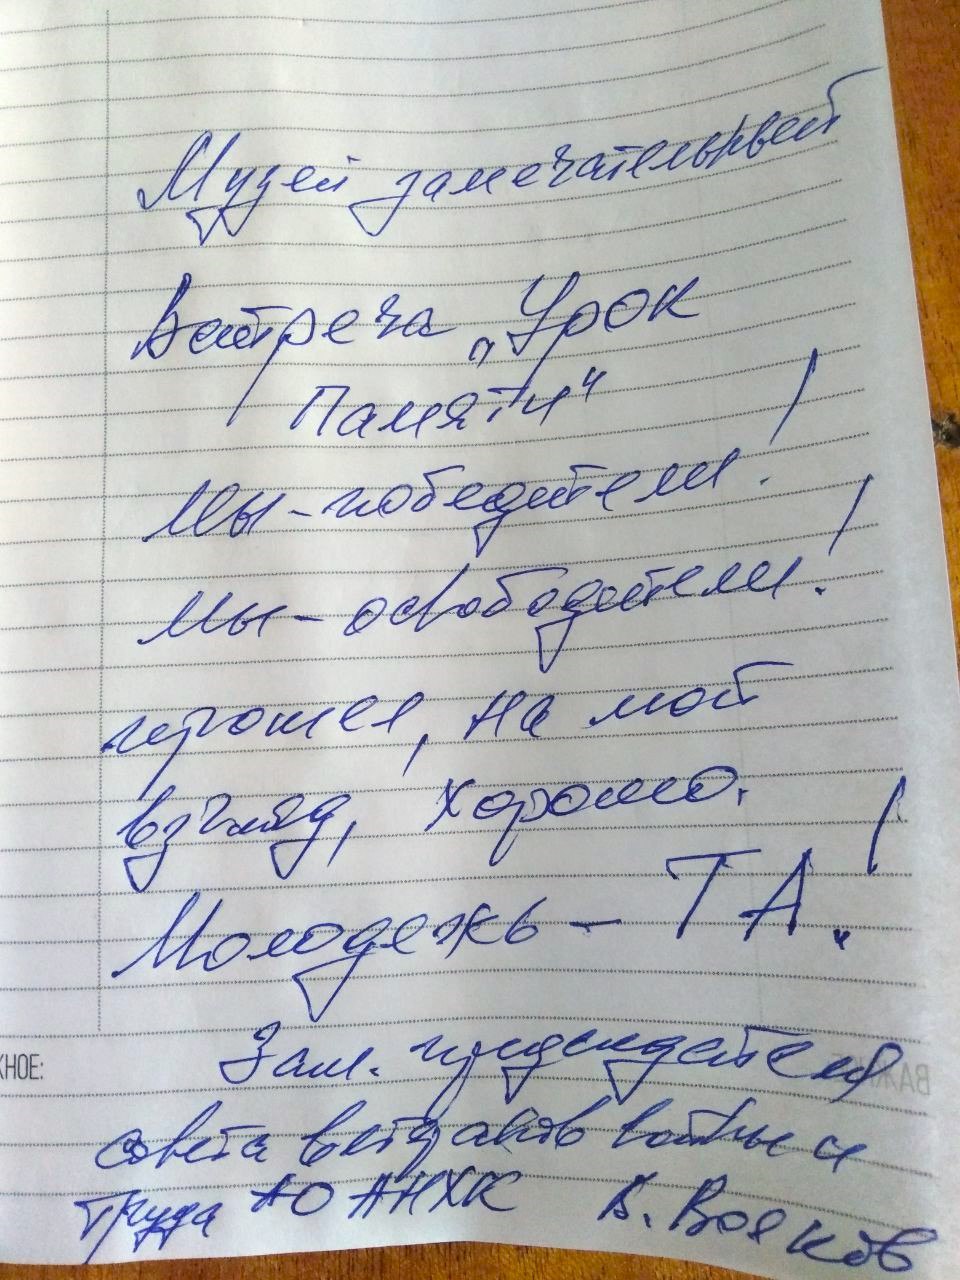 Музей замечательный
Встреча „Урок
Памяти"
Мы - победители!
Мы - освободители!
прошел, на мой
взгляд, хорошо.
Молодежь - ТА!
Зам. председателя
совета ветеранов войны и
труда АО АНХК В.
ЖНОЕ: